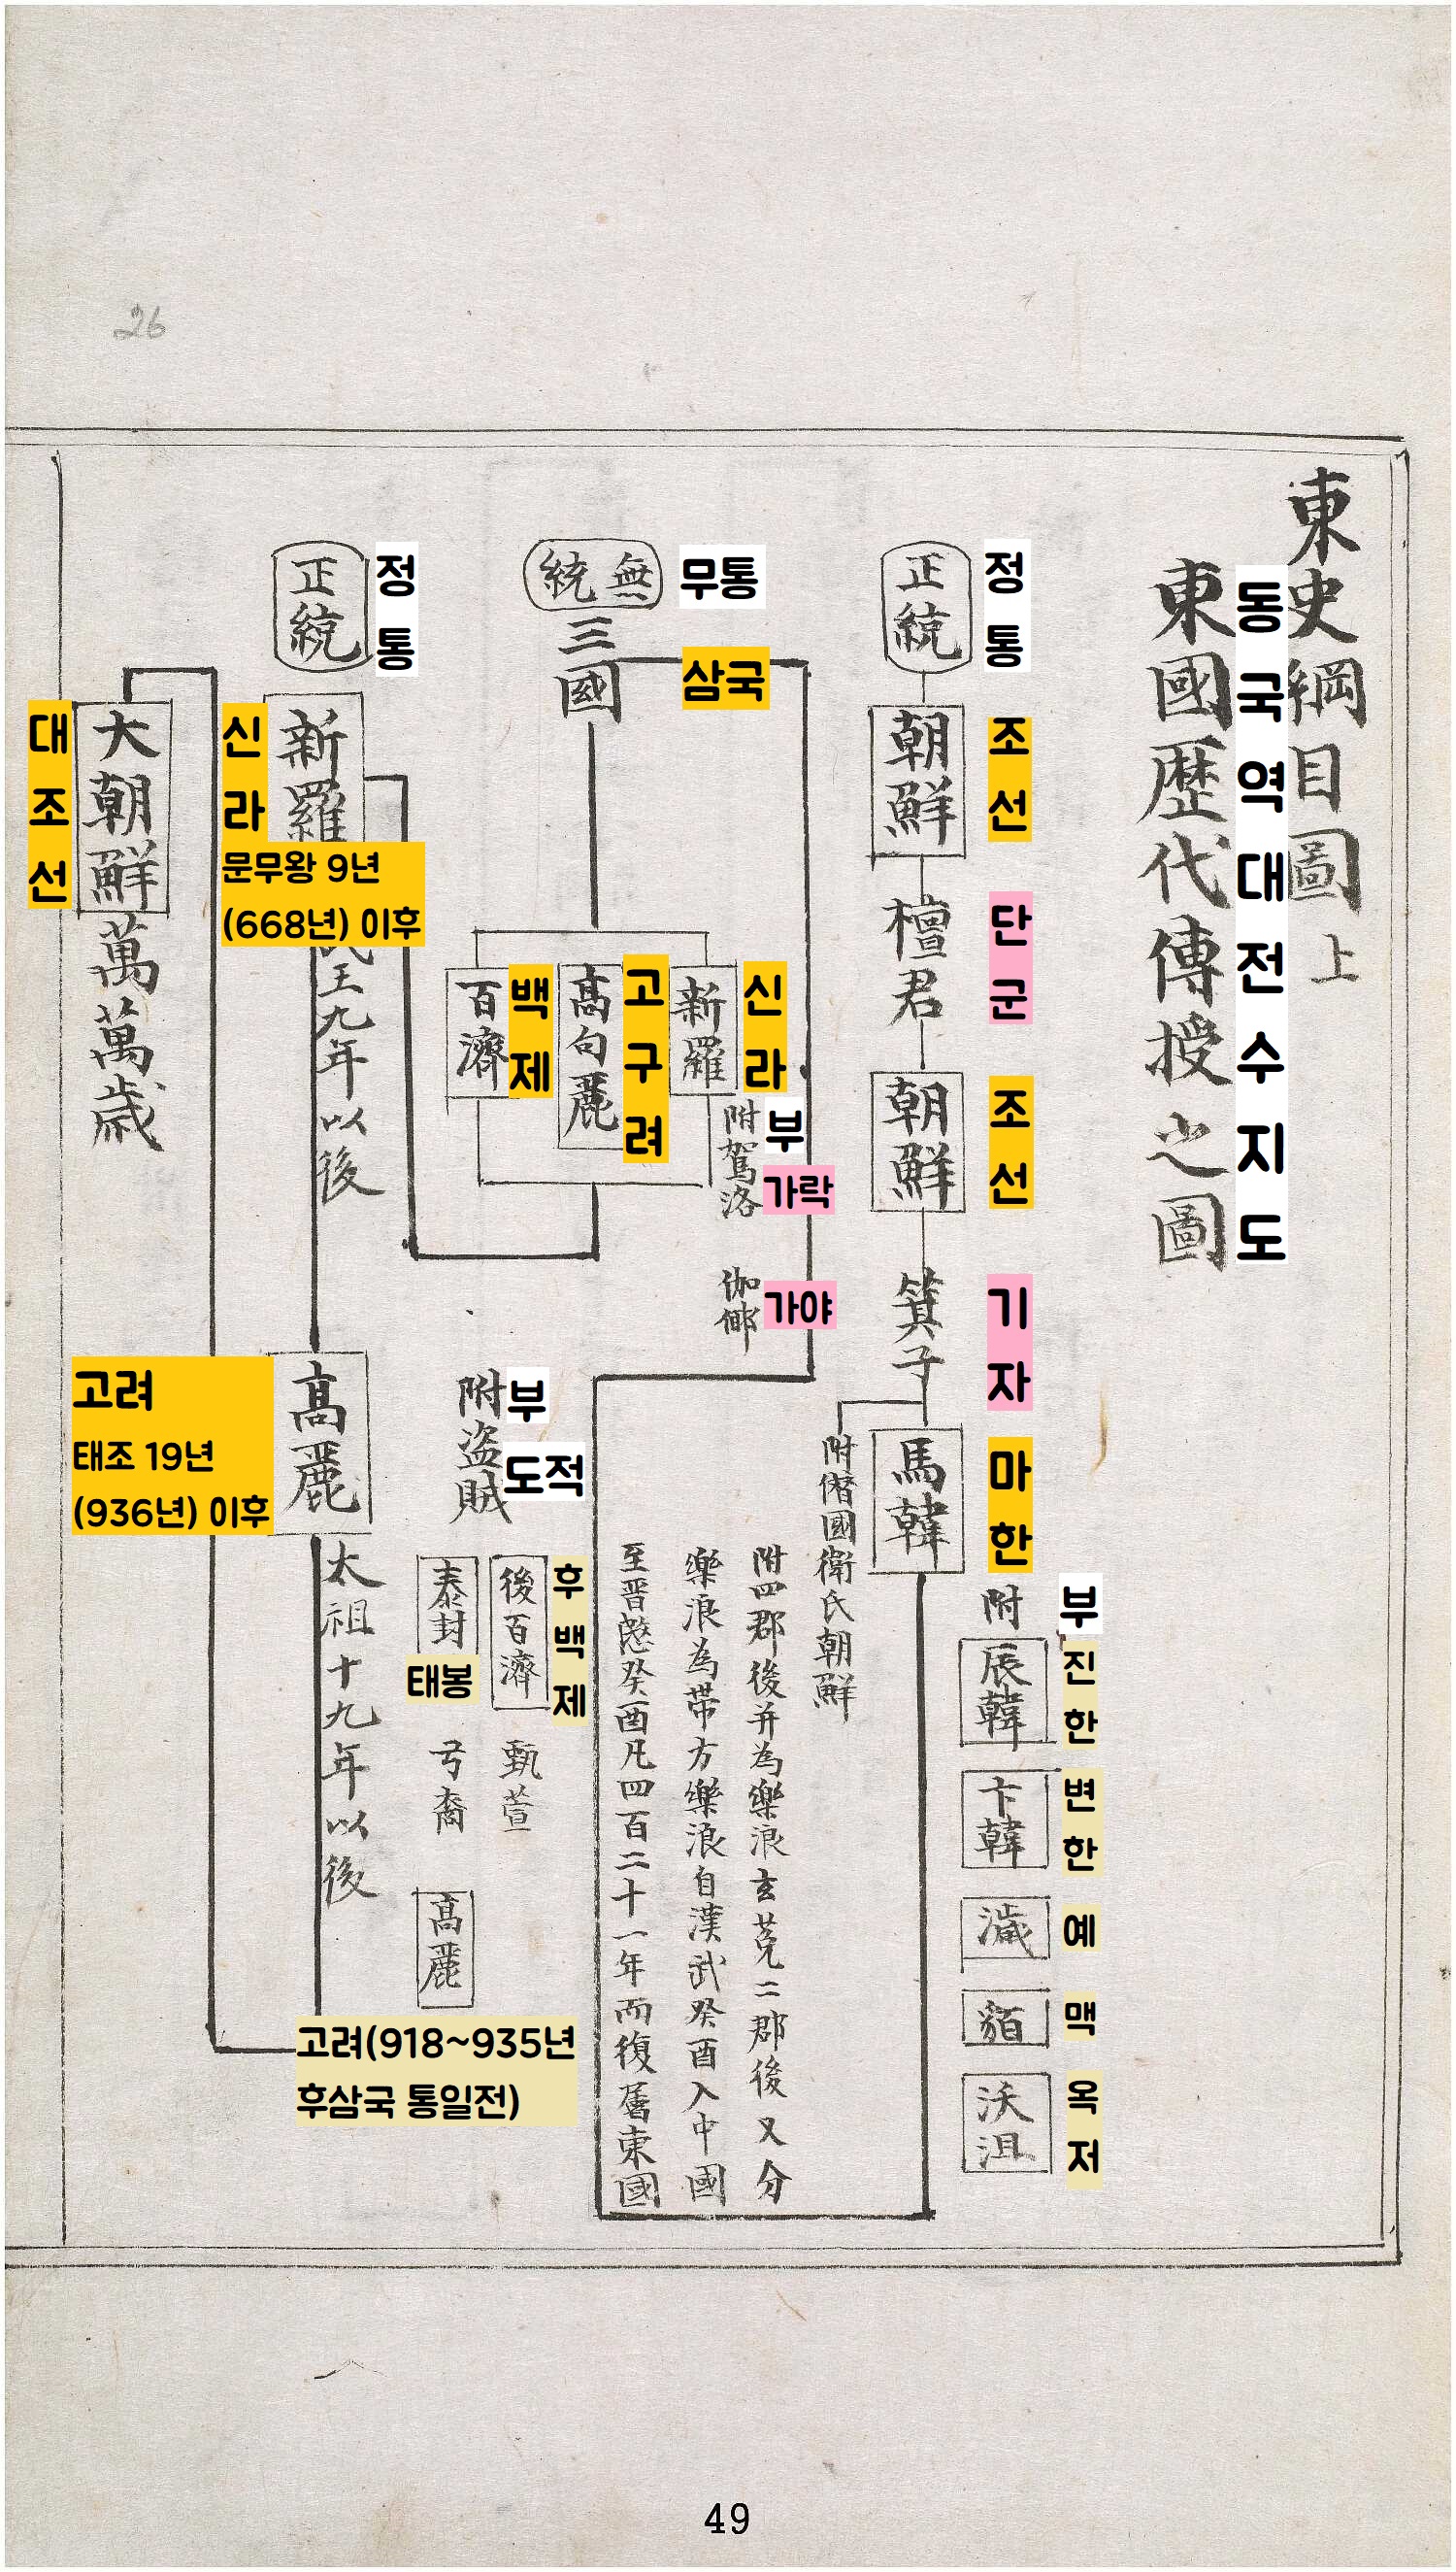 東史綱目圖上
東國歷代傳授之圖
동국역대전수지도
正統
정통
朝鮮
조선
檀君
단군
朝鮮
조선
箕子
기자
馬韓
마한
附
부
辰韓
진한
卞韓
변한
濊
예
貊
맥
沃沮
옥저
附僭國衛氏朝鮮
附四郡後并為樂浪玄菟二郡後又分
樂浪為帶方樂浪自漢武癸酉入中國
至晋愍癸酉凡四百二十一年而復屬東國
無統
무통
三國
삼국
新羅
신라
附駕洛
부
가락
伽倻
가야
高句麗
고구려
百濟
백제
附盜賊
부
도적
後百濟
후백제
甄萱
泰封
태봉
弓裔
高麗
고려(918~935년
후삼국 통일전)
正統
정통
新羅
신라
문무왕 9년
(668년) 이후
王九年以後
高麗
고려
태조 19년
(936년) 이후
太祖十九年以後
大朝鮮萬萬歲
대조선
26
49